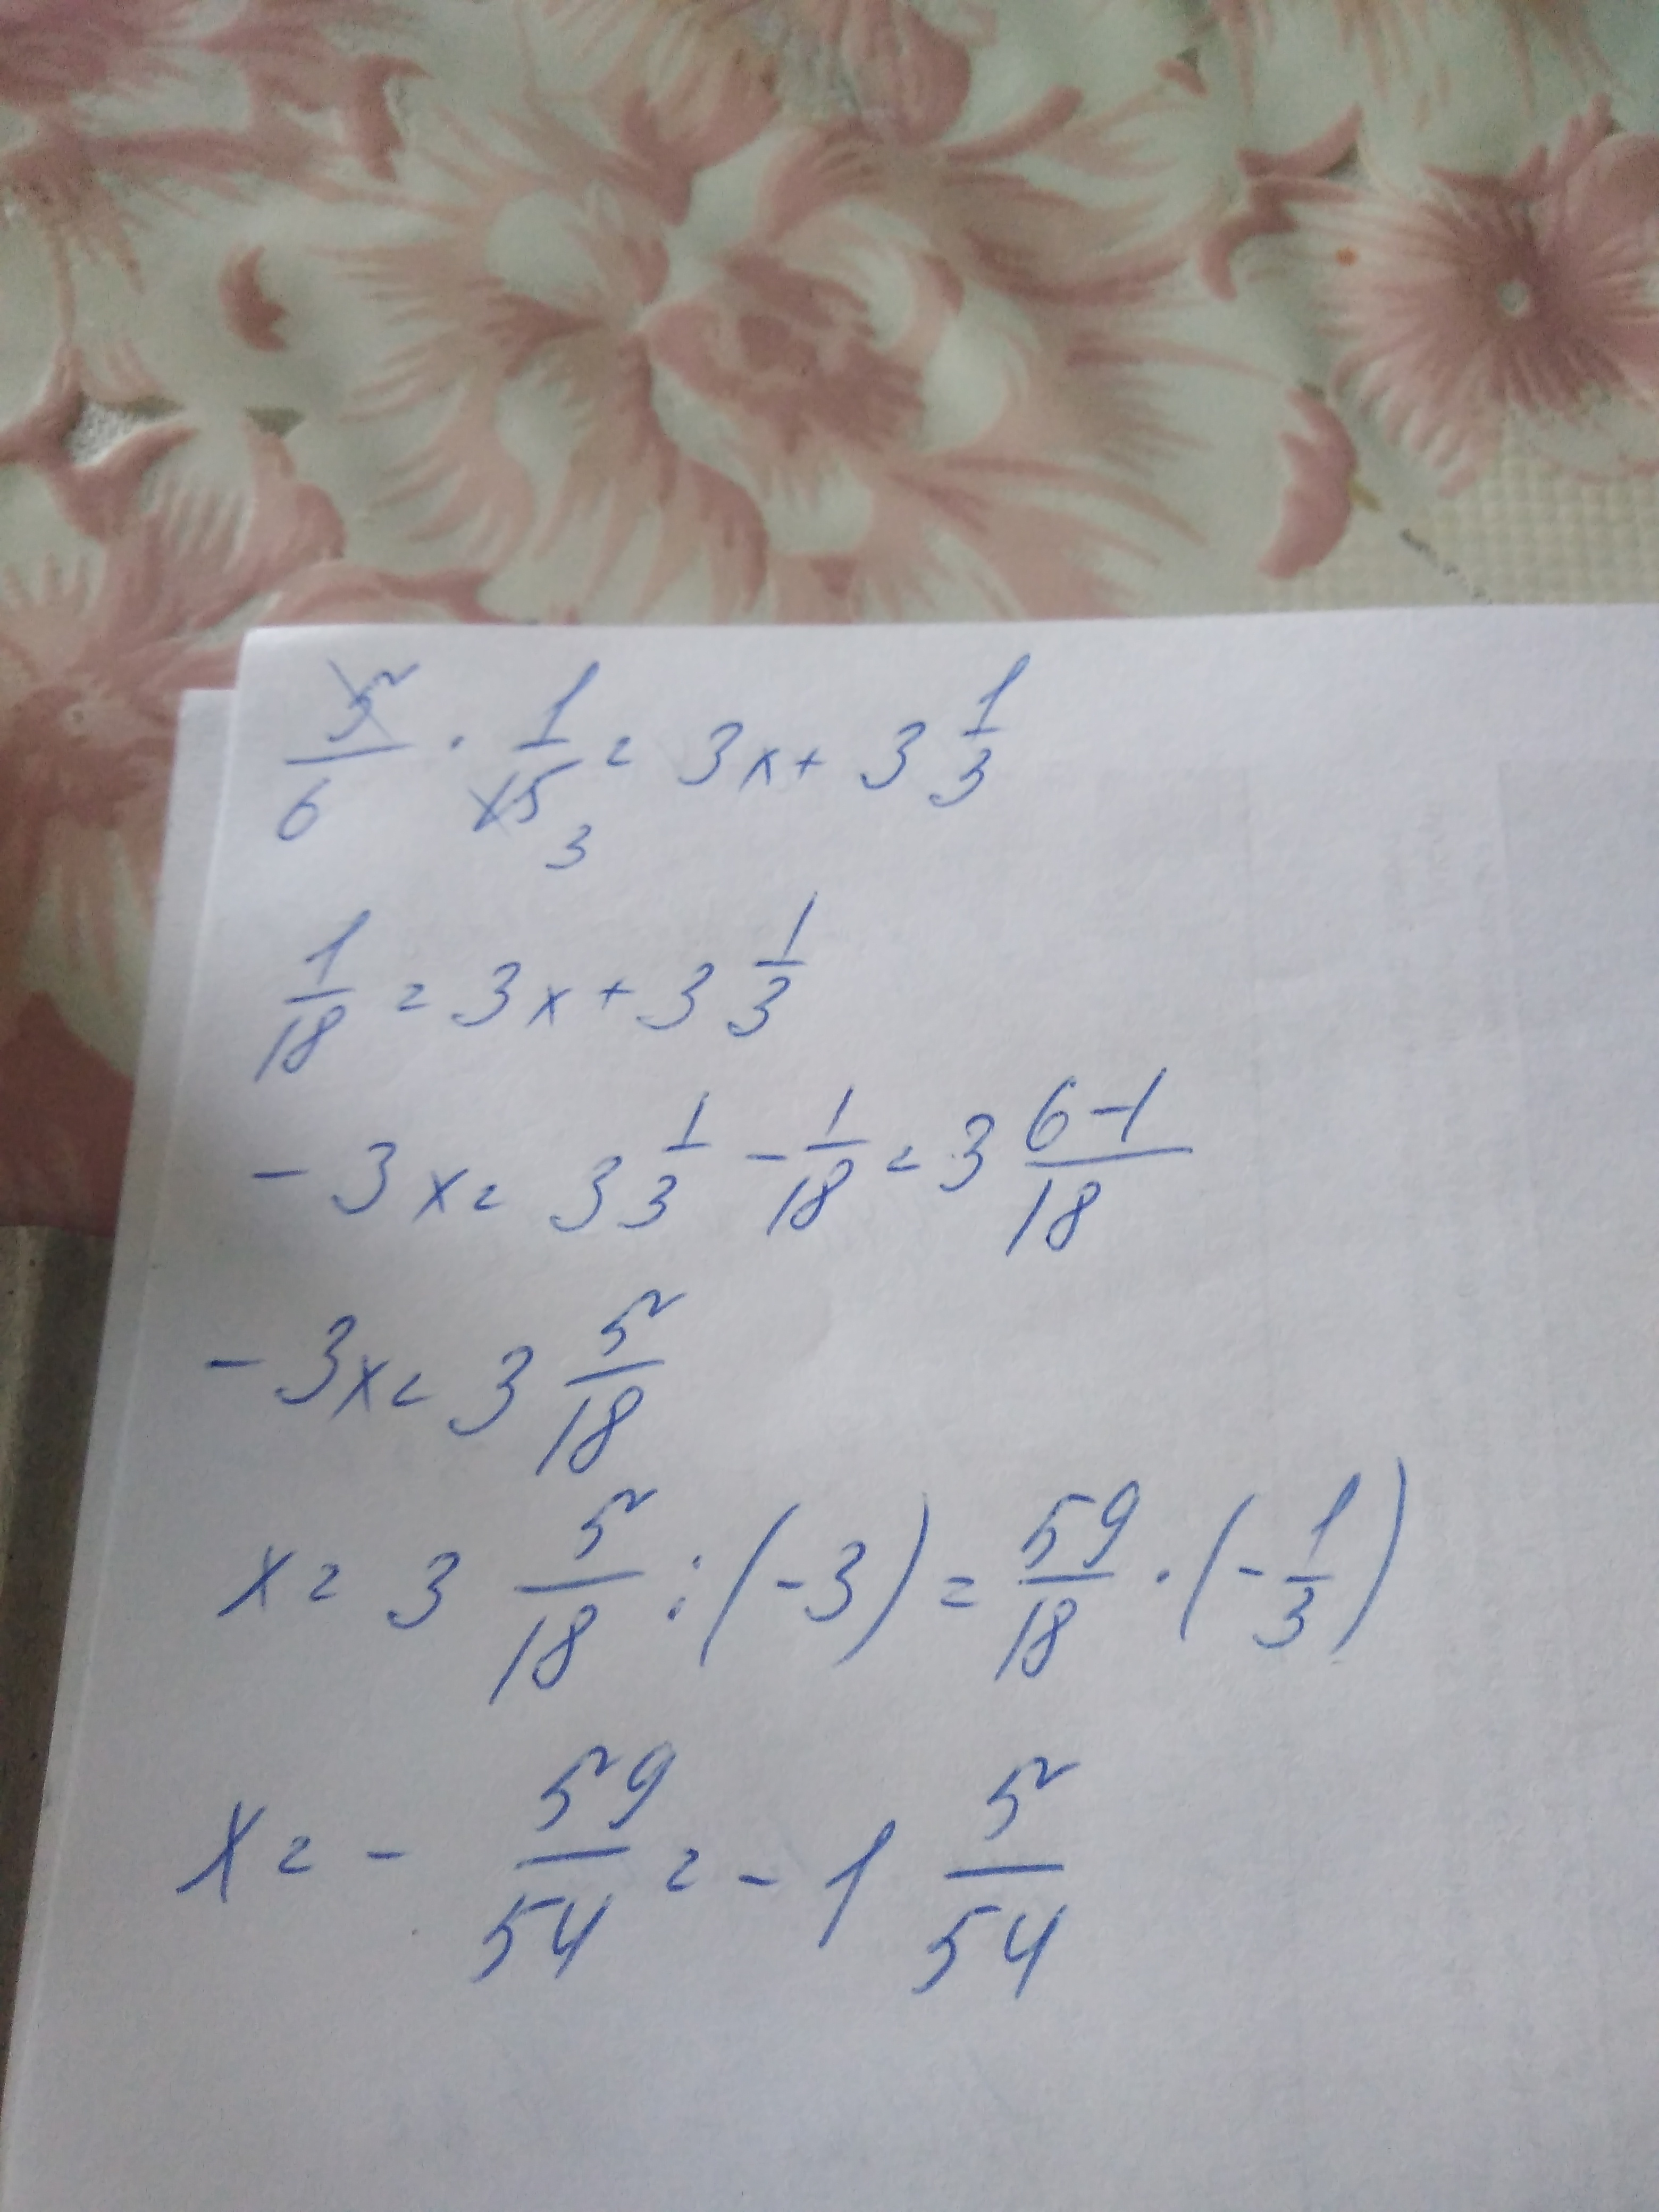 5/6 · 1/15 3 = 3x + 3 1/3
1/18 = 3x + 3 1/3
- 3x = 3 1/3 - 1/18 = 3 6-1/18
- 3x = 3 5/18
x = 3 5/18 : (-3) = 59/18 · (- 1/3)
x = - 59/54 = - 1 5/54